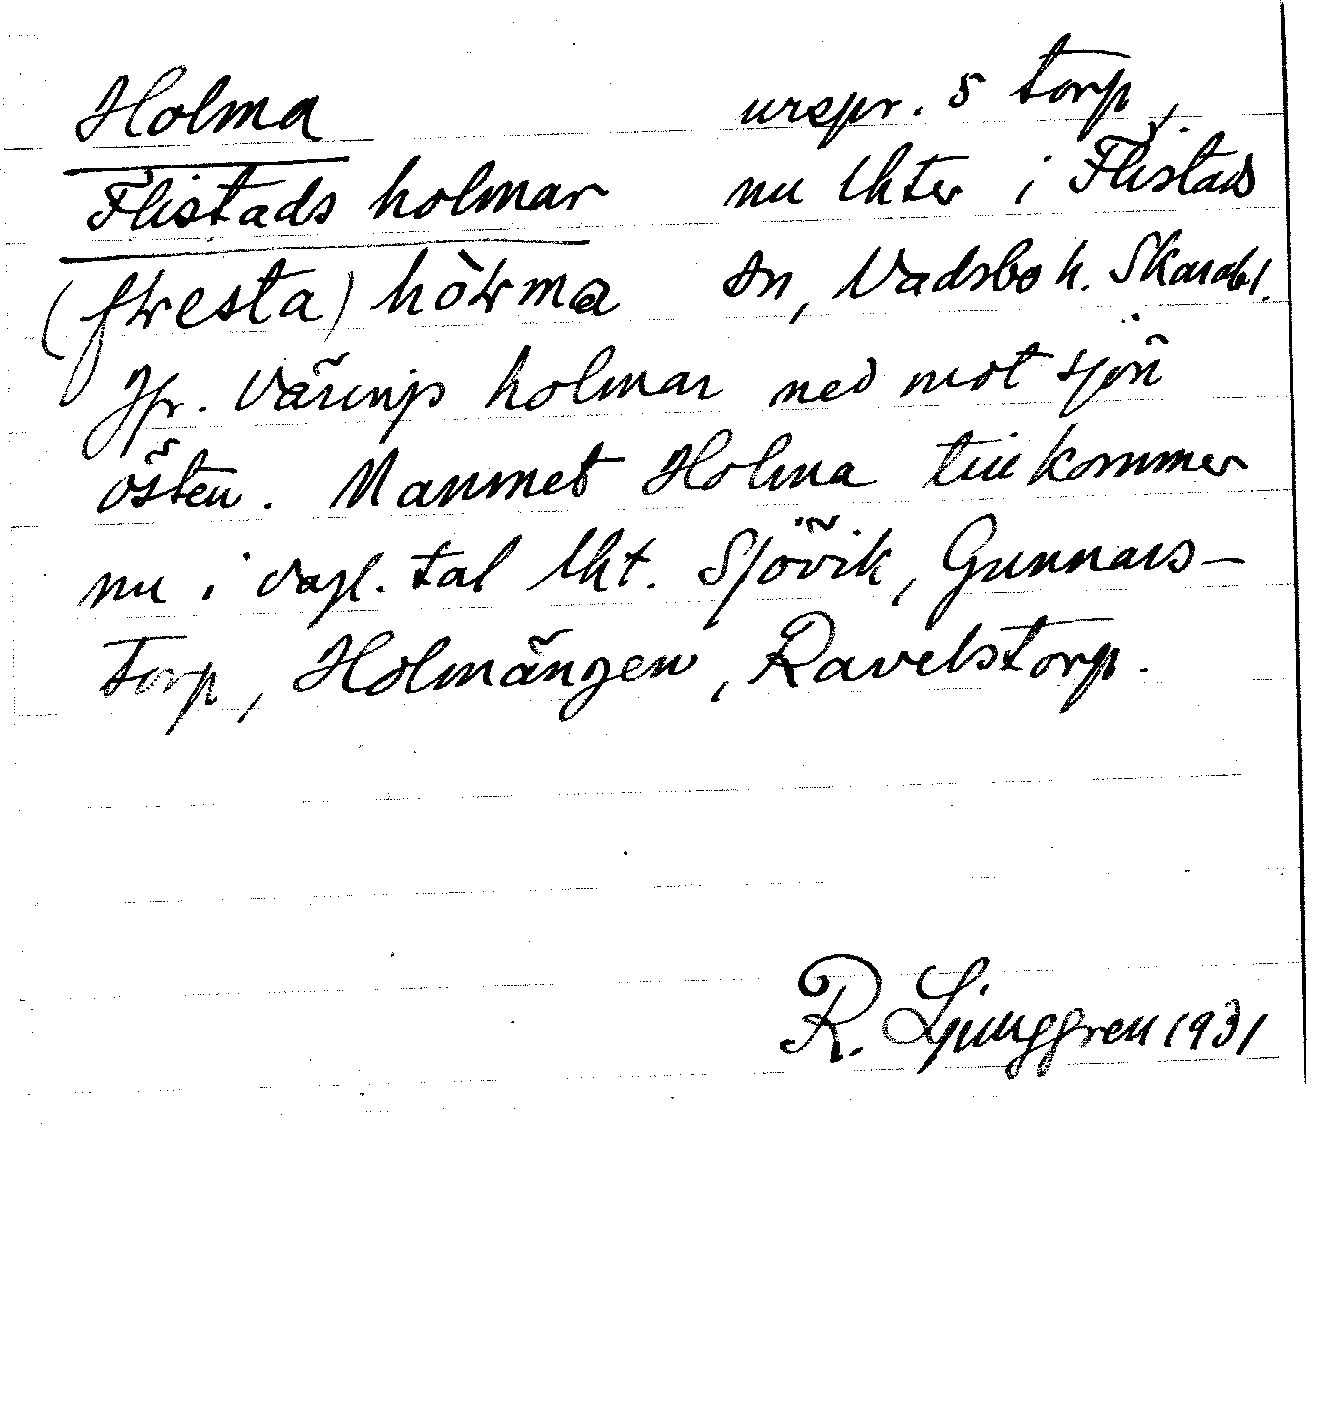 Holma urspr. 5 torp,
Flistads holmar nu lhter i Flistads
(flresta) hòlma sn, Vadsbo h. Skarabl.
Jfr. Värings holmar ned mot sjön
östen. Namnet Holma tillkommer
nu i dagl. tal lht. Sjövik, Gunnars-
torp, Holmängen, Ravelstorp.
R. Ljunggren 1931